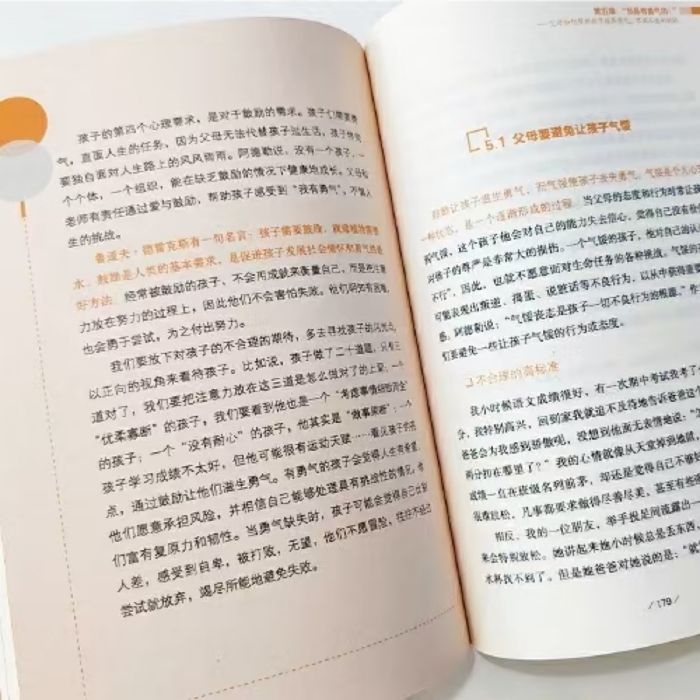 孩子的第四个心理需求，是对于鼓励的需求。孩子们需要勇
气，直面人生的任务，因为父母无法代替孩子过生活，孩子终究
要独自面对人生路上的风风雨雨。阿德勒说，没有一个孩子，一
个个体，一个组织，能在缺乏鼓励的情况下健康地成长。父母和
老师有责任通过爱与鼓励，帮助孩子感受到“我有勇气”，不惧人
生的挑战。
鲁道夫·德雷克斯有一句名言：孩子需要鼓励，就像植物需要
水。鼓励是人类的基本需求，是促进孩子发展社会情怀和勇气的最
好方法。经常被鼓励的孩子，不会用成就来衡量自己，而是把注意
力放在努力的过程上，因此他们不会害怕失败。他们明知有困难，
也会勇于尝试，为之付出努力。
我们要放下对孩子的不合理的期待，多去寻找孩子的闪光点，
以正向的视角来看待孩子。比如说，孩子做了二十道题，只有三
道对了，我们要把注意力放在这三道是怎么做对了的上。一个
“优柔寡断”的孩子，我们要看到他也是一个“考虑事情细致周全”
的孩子；一个“没有耐心”的孩子，他其实是“做事果断”；一个
孩子学习成绩不太好，但他可能很有运动天赋……看见孩子的优
点，通过鼓励让他们滋生勇气。有勇气的孩子会觉得人生有希望，
他们愿意承担风险，并相信自己能够处理具有挑战性的情况，他
们富有复原力和韧性。当勇气缺失时，孩子可能会觉得自己比别
人差，感受到自卑，被打败，无望，他们不愿冒险，往往不经过
尝试就放弃，竭尽所能地避免失败。
第五章：“我是有勇气的！”
5.1 父母要避免让孩子气馁
鼓励让孩子滋生勇气，而气馁使孩子丧失勇气。气馁是个人心
一种状态，是一个逐渐形成的过程。当父母的态度和行为时常让孩
到气馁，这个孩子他会对自己的能力失去信心，觉得自己没有价
对孩子的尊严是非常大的损伤。一个气馁的孩子，他对自己的认
不行”，因此，也就不愿意面对生命任务的各种挑战。气馁的
可能表现出叛逆、捣蛋、说脏话等不良行为，以从中获得重
感。阿德勒说：“气馁丧志是孩子一切不良行为的根源。”作
们要避免一些让孩子气馁的行为或态度。
不合理的高标准
我小时候语文成绩很好，有一次期中考试我考了
分，我特别高兴，回到家我就迫不及待地告诉爸爸这个
爸爸会为我感到骄傲呢，没想到他面无表情地说：“
两分扣在哪里了？”我的心情就像从天堂掉到地狱，
成绩一直在班级名列前茅，却还是觉得自己不够好
很难放松，凡事都要求做得尽善尽美，甚至有些
相反，我的一位朋友，举手投足间流露出一
来会特别放松。她讲起来她小时候总是丢东
水杯找不到了。但是她爸爸对她说的是：“
/ 179 /